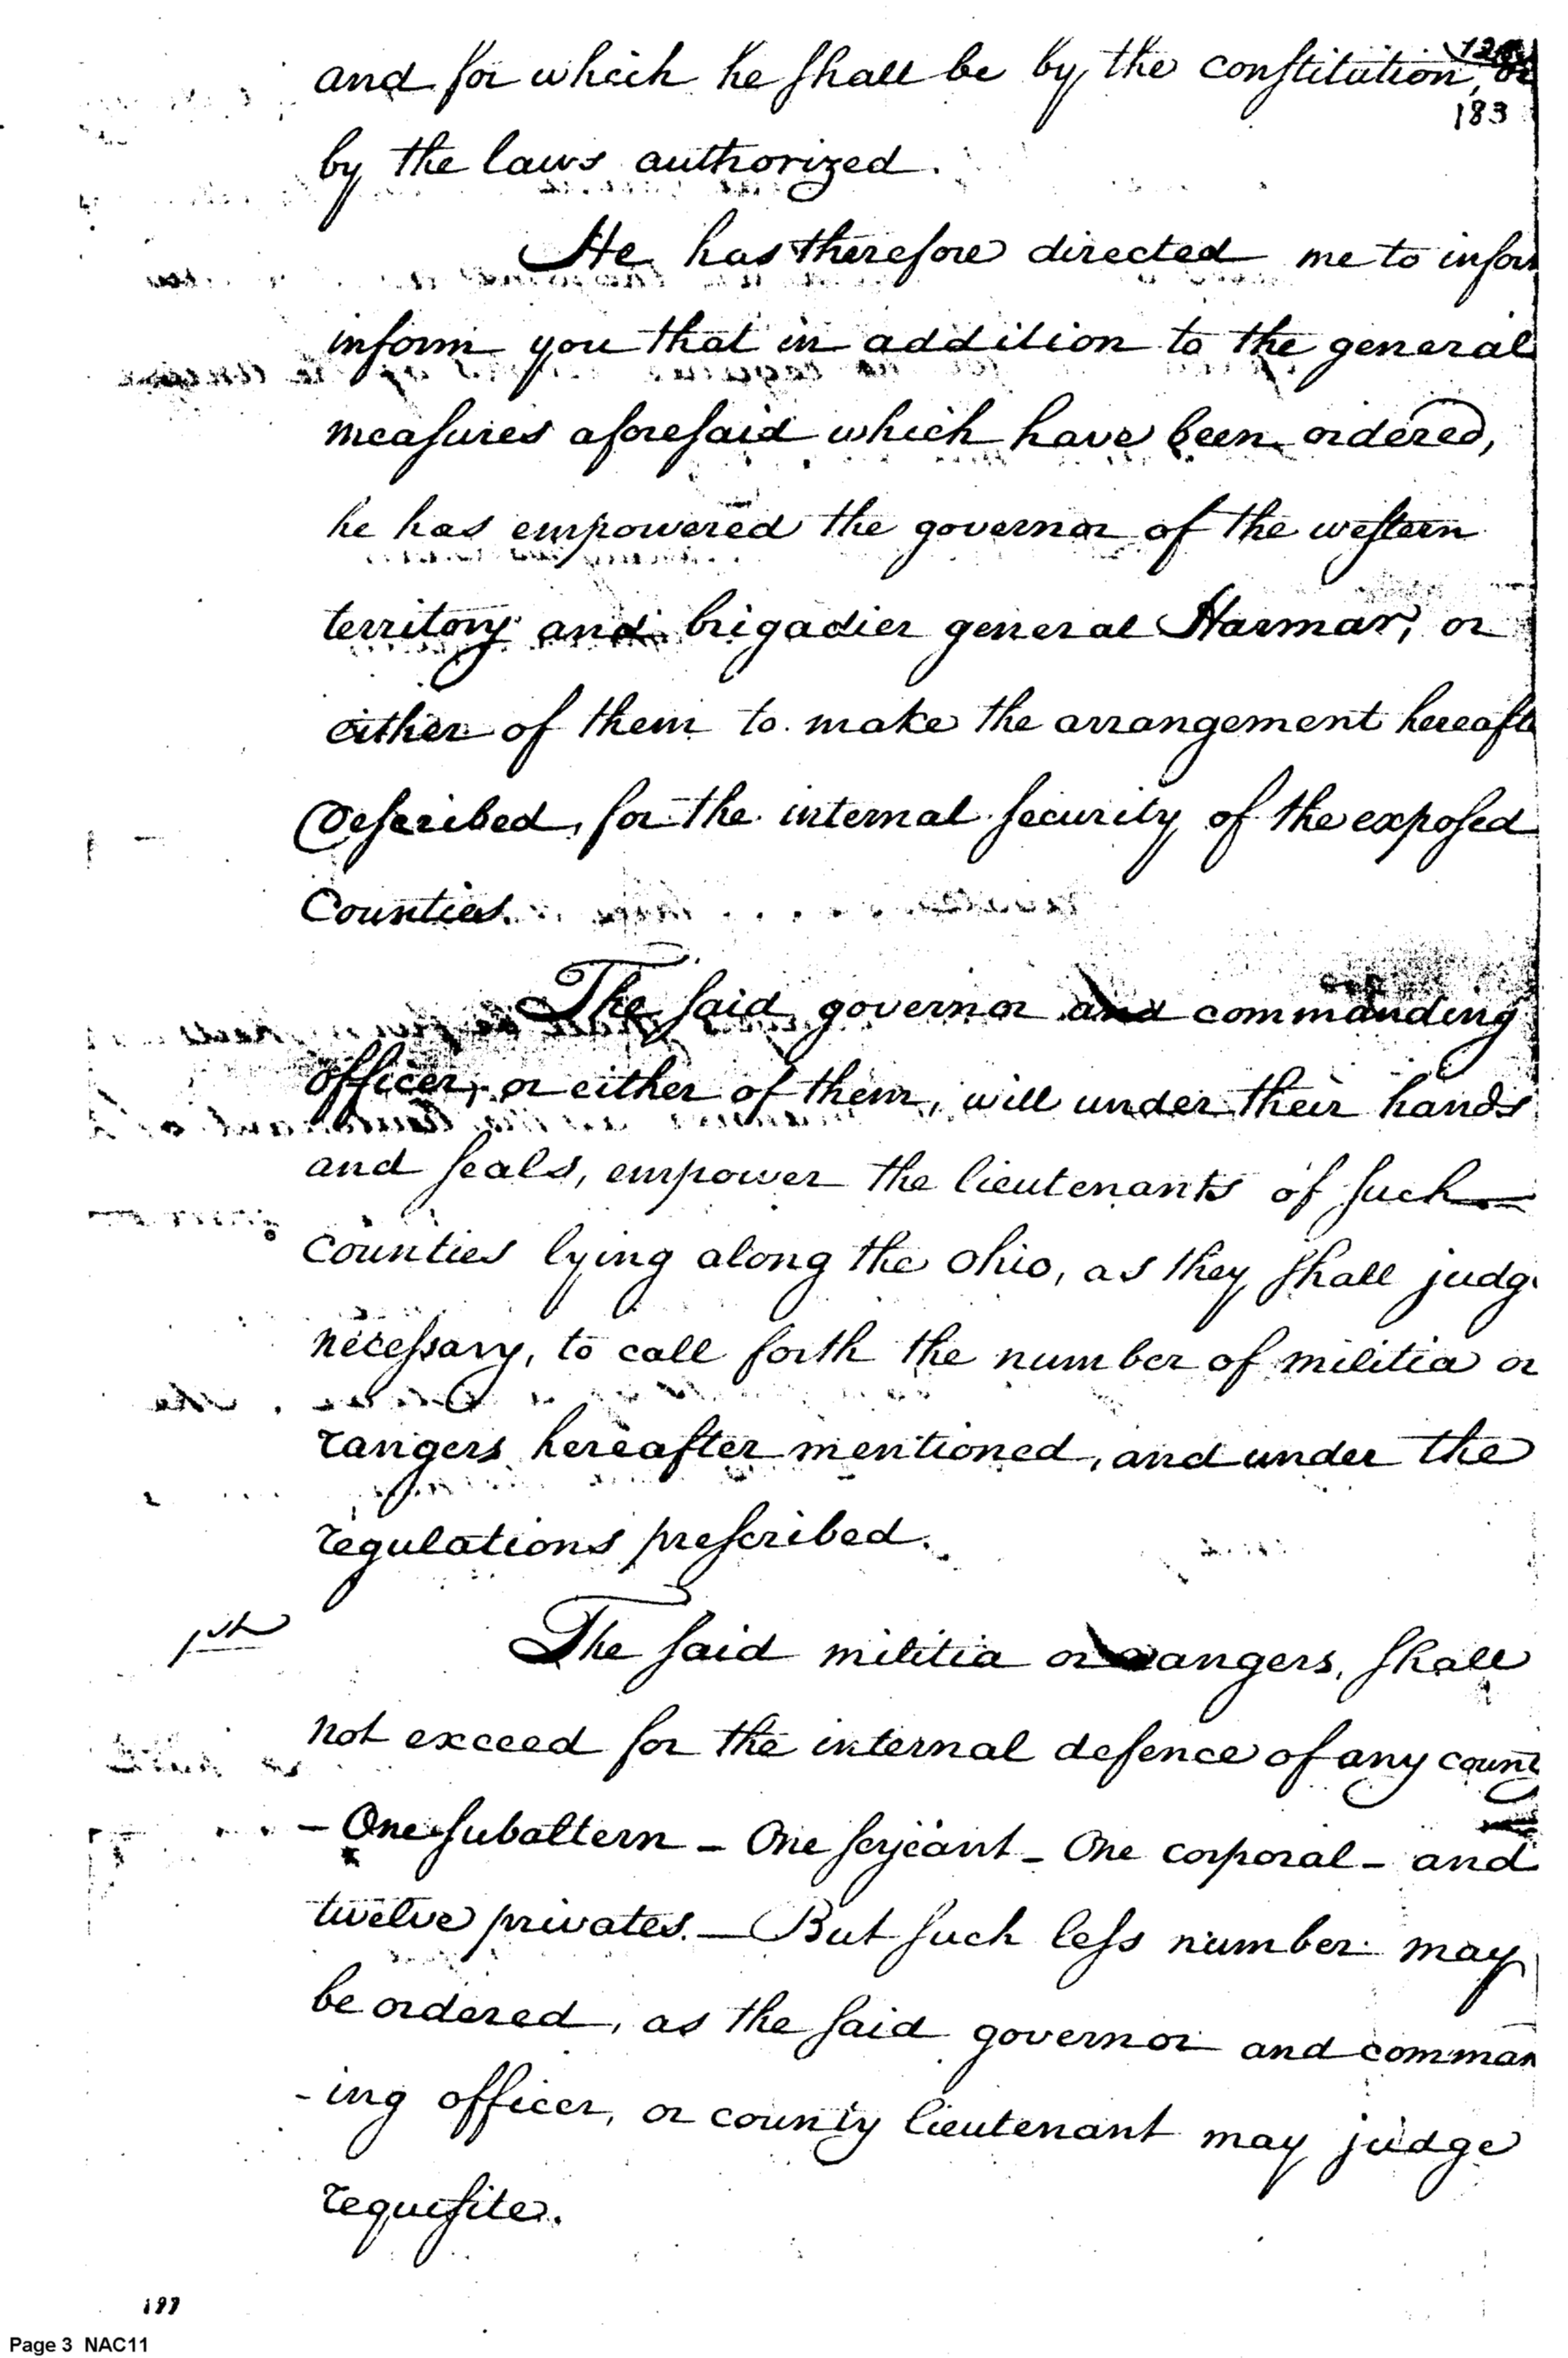 and for which he shall be by the constitution, or
183
by the laws authorized.
He has therefore directed me to infor
inform you that in addition to the general
measures aforesaid which have been ordered,
he has empowered the governor of the western
territory and brigadier general Harmar, or
either of them to make the arrangement hereafte
described, for the internal security of the exposed
Counties.
The said governor and commanding
officer, or either of them, will under their hands
and seals, empower the lieutenants of such
counties lying along the Ohio, as they shall judge
necessary, to call forth the number of militia or
rangers hereafter mentioned, and under the
regulations prescribed.
1st The said militia or rangers, shall
not exceed for the internal defence of any county
- One subaltern - One serjeant - One corporal - and
twelve privates. — But such less number may
be ordered, as the said governor and comman
-ing officer, or county lieutenant may judge
requisite.
Page 3 NAC11